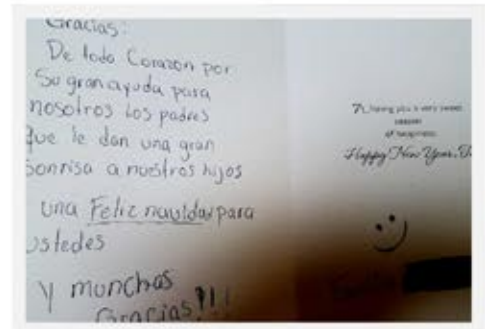 Gracias:
De todo Corazon por
Su gran ayuda para
nosotros los padres
Que le dan una gran
Sonrisa a nuestros hijos
una Feliz navidad para
ustedes
y munchas
Gracias!!!
you a very sweet
season
of happiness.
Happy New Year,